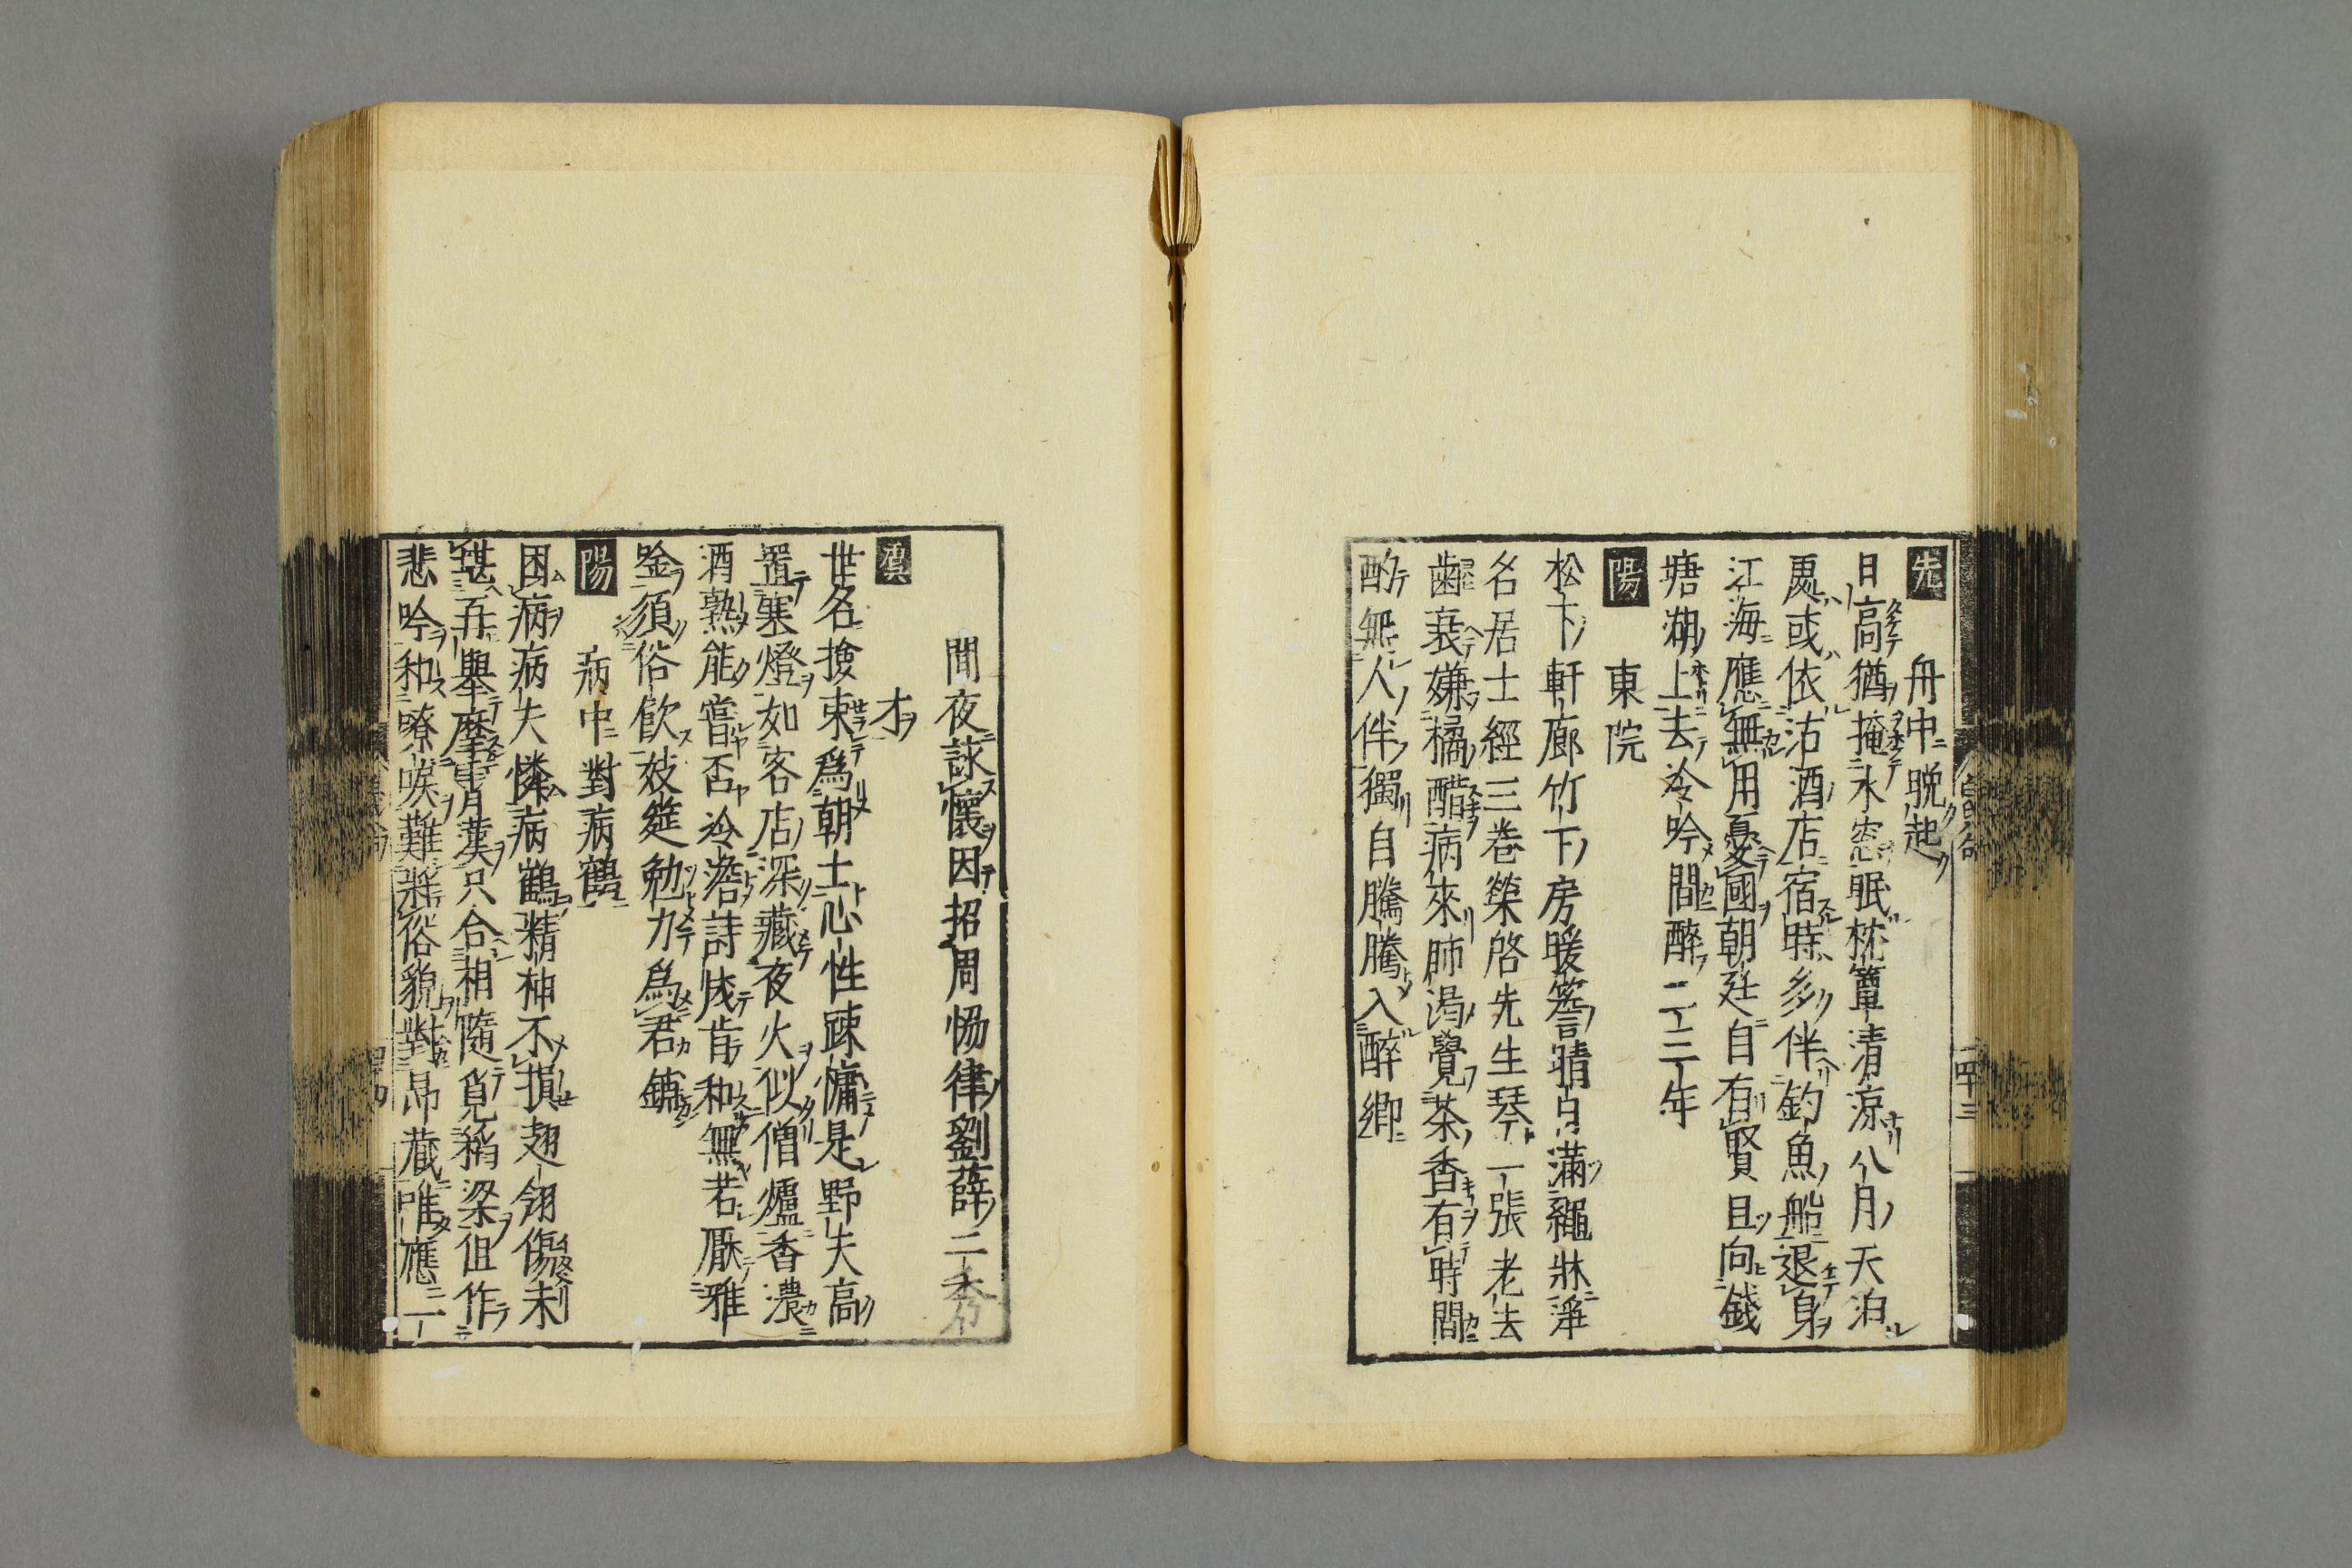 先
舟中晩起
日高猶掩水窓眠枕簟清涼八月天泊
處或依沽酒店宿時多伴釣魚船退身
江海應無用憂國朝廷自有賢且向錢
塘湖上去冷吟閒醉二三年
陽
東院
松下軒廊竹下房暖簷晴日滿繩牀淨
名居士經三卷榮啓先生琴一張老去
齒衰嫌橘醋病來肺渴覺茶香有時閒
酌無人伴獨自騰騰入醉鄉
閒夜詠懷因招周協律劉薛二秀
才
眞
世名撿束爲朝士心性踈慵是野夫高
置寒燈如客店深藏夜火似僧爐香濃
酒熟能嘗否冷澹詩成肯和無若厭雅
吟須俗飲妓筵勉力爲君鋪
陽
病中對病鶴
同病病夫憐病鶴精神不損翅翎傷未
堪再舉摩青漢只合相隨覓稻粱但作
悲吟和嘹唳難將俗貌對昂藏唯應一